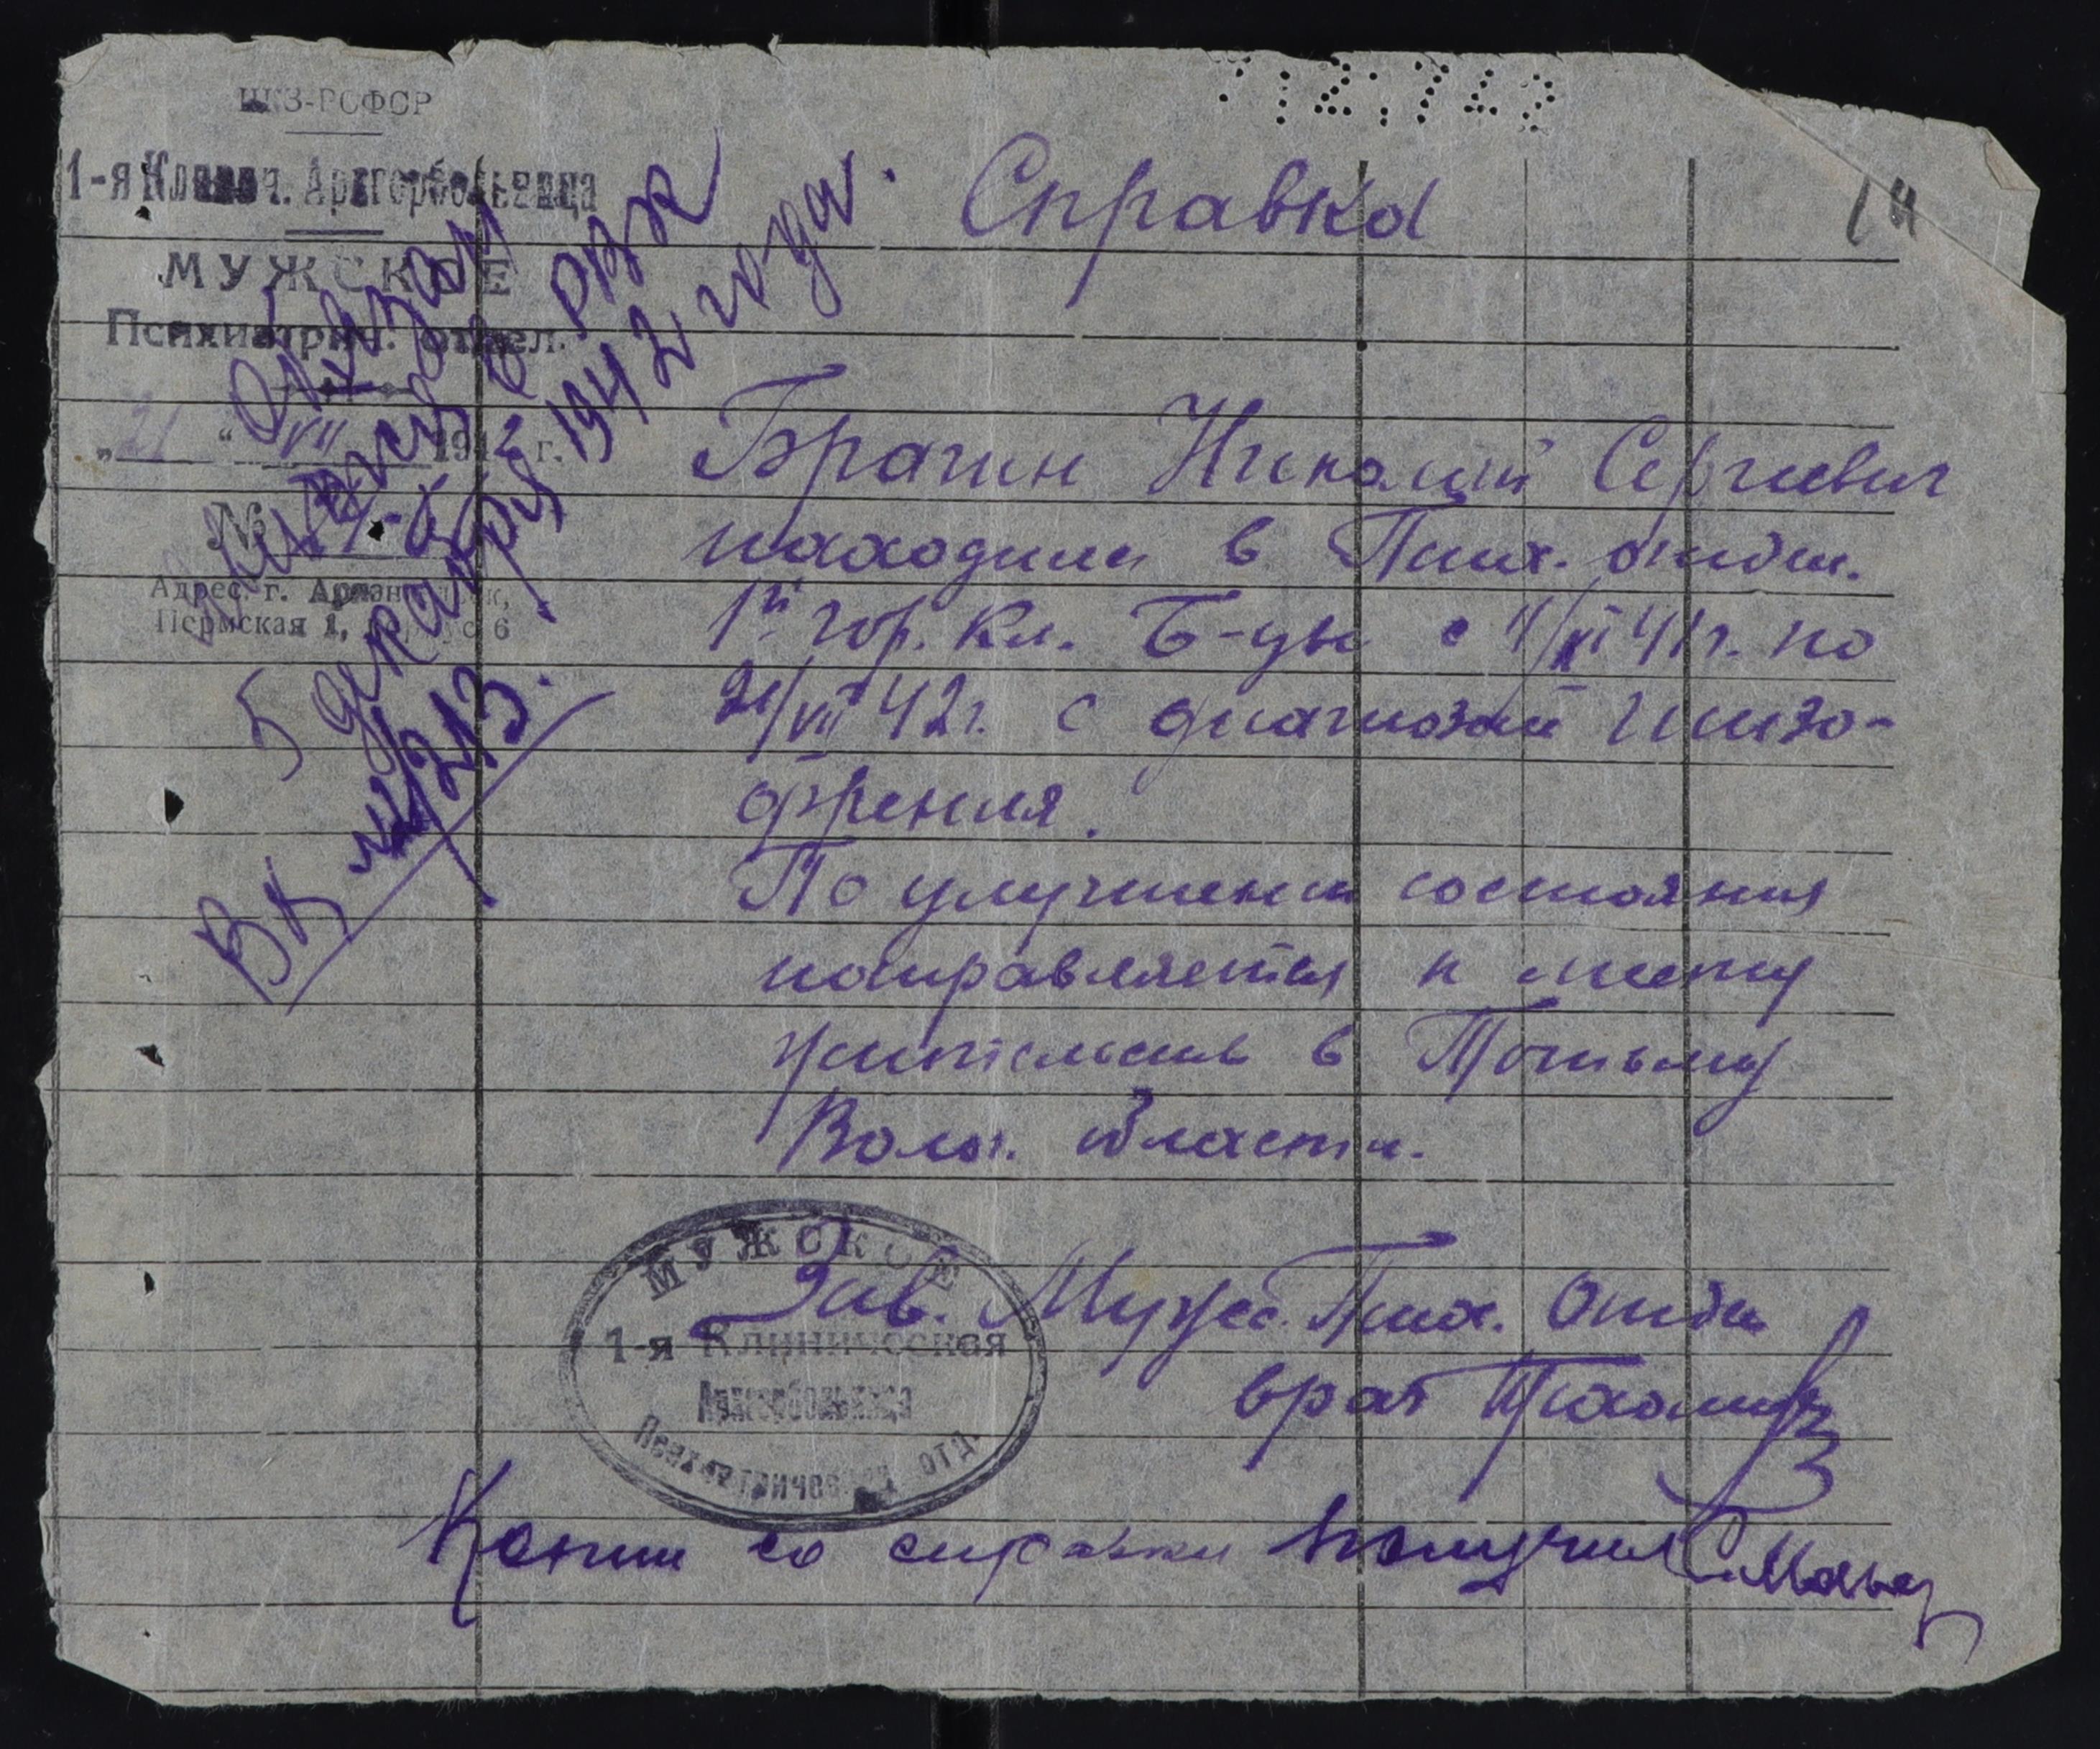 НКЗ-РСФСР
1-я Клинич. Архгорбольница
МУЖСКОЕ
Психиатрич. отдел.
„21“ VII 1942 г.
№
Адрес: г. Архангельск,
Пермская 1, корпус 6
5 декабря 1942 года.
ВК
Справка
14
Брагин Николай Сергиевич
находился в Псих. отдел.
1й гор. Кл. Б-цы с 4/XI 41г. по
21/VII 42г. с диагнозом Шизо-
френия.
По улучшении состояния
направляется к месту
жительства в Тотьму
Волог. области.
МУЖСКОЕ
1-я Клиническая
Архгорбольница
Психиатрическое отд.
Зав. Мужс. Псих. Отдел
врач
Копию со справки получил